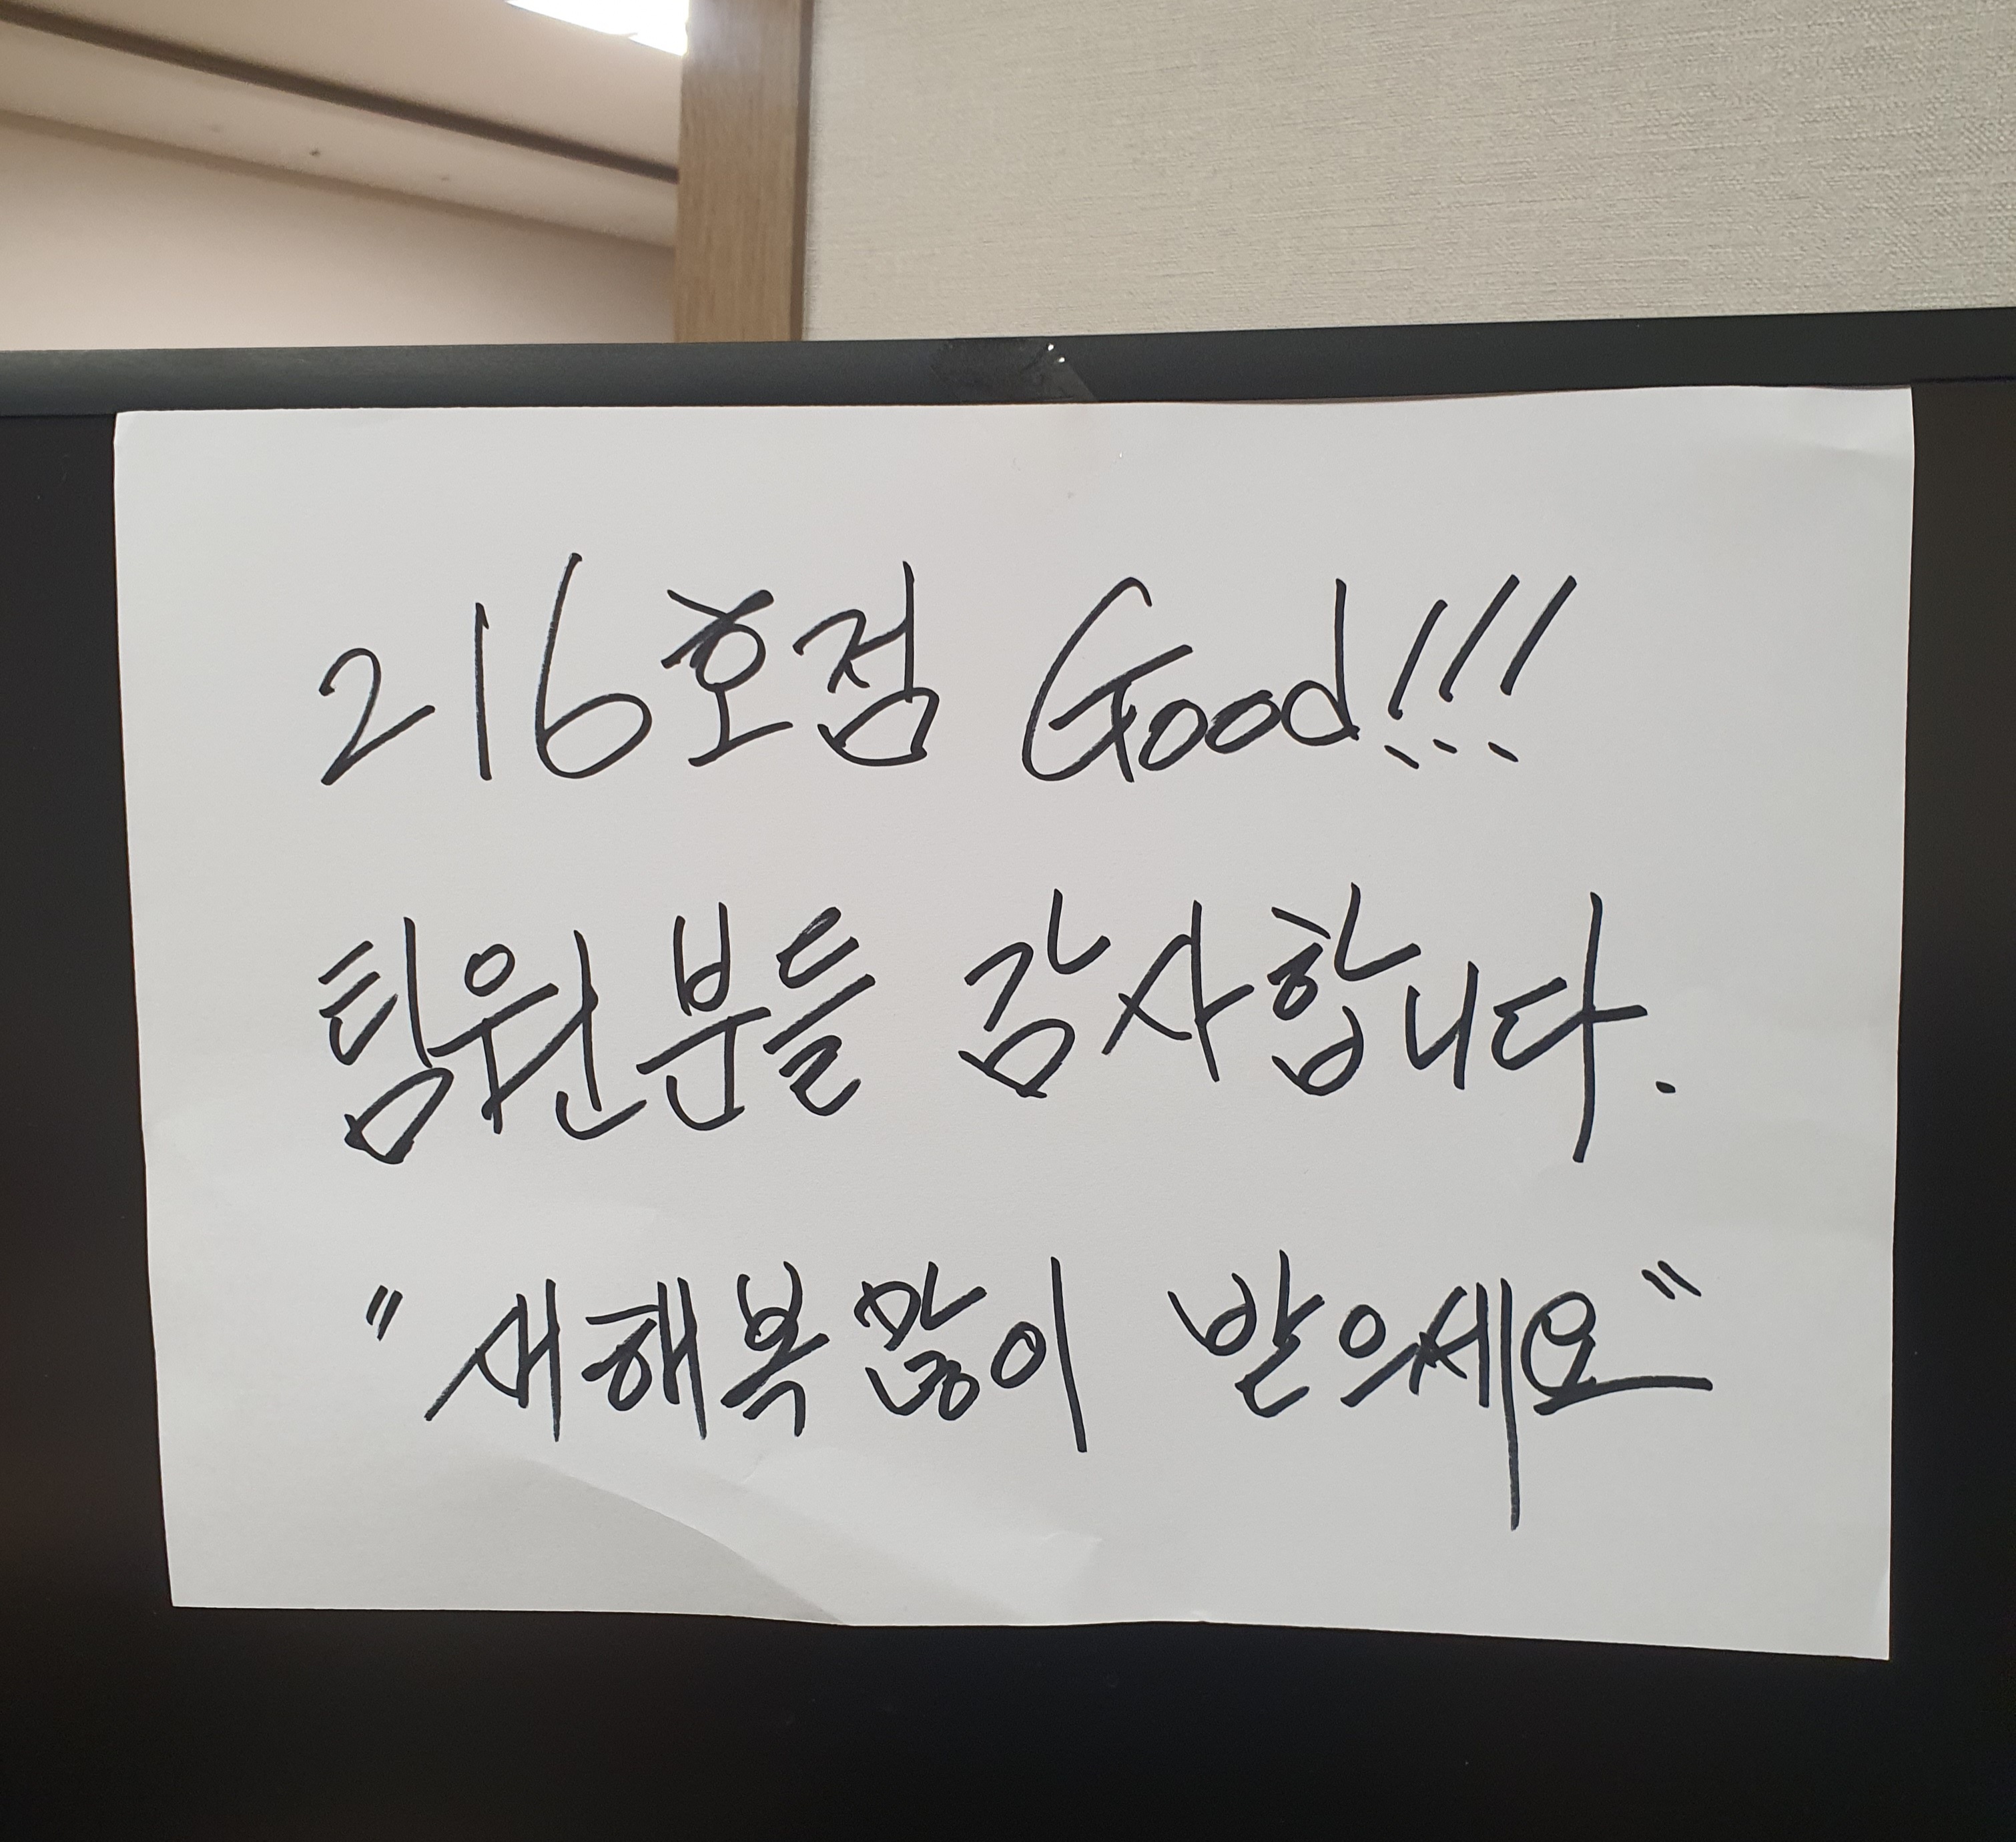 216호점 Good!!!
팀원분들 감사합니다.
"새해복많이 받으세요"